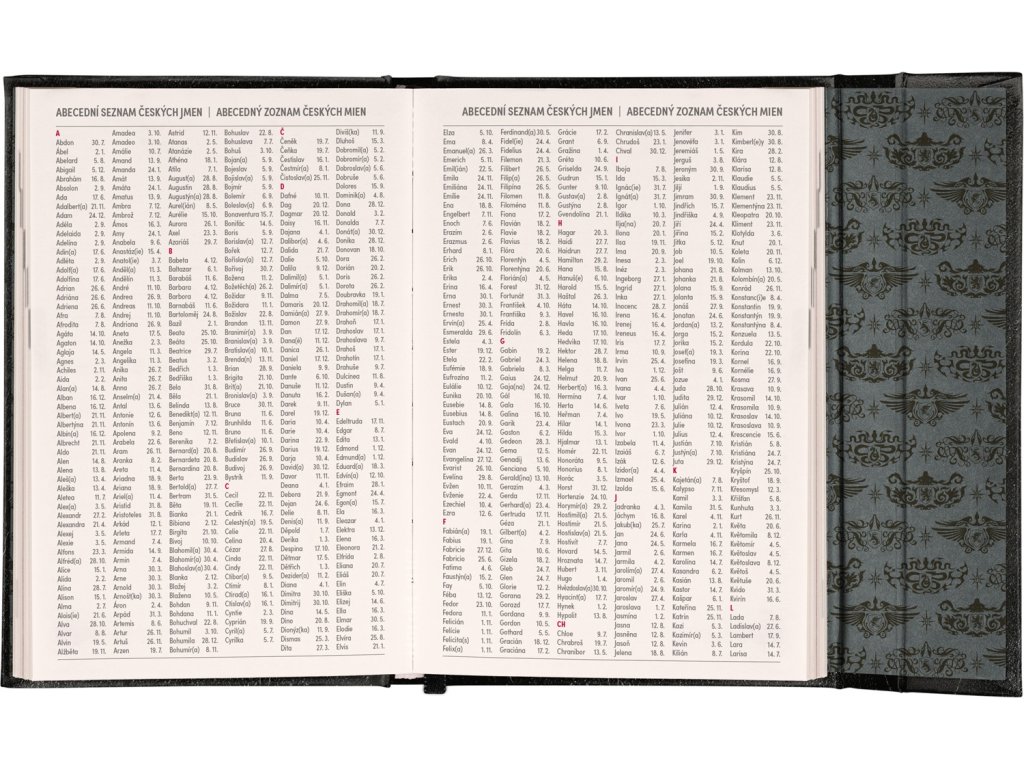 ABECEDNÍ SEZNAM ČESKÝCH JMEN | ABECEDNÝ ZOZNAM ČESKÝCH MIEN
A
Abdon 30. 7.
Ábel 2. 1.
Abelard 5. 8.
Abigail 5. 12.
Abrahám 16. 8.
Absolon 2. 9.
Ada 17. 6.
Adalbert(a) 21. 11.
Adam 24. 12.
Adéla 2. 9.
Adelaida 2. 9.
Adelína 2. 9.
Adin(a) 17. 6.
Adléta 2. 9.
Adolf(a) 17. 6.
Adolfína 17. 6.
Adrian 26. 6.
Adriána 26. 6.
Adriena 26. 6.
Afra 7. 8.
Afrodita 7. 8.
Agáta 14. 10.
Agaton 14. 10.
Aglaja 14. 5.
Agnes 2. 3.
Achiles 2. 11.
Aida 2. 2.
Alan(a) 14. 8.
Alban 16. 12.
Albena 16. 12.
Albert(a) 21. 11.
Albertýna 21. 11.
Albín(a) 16. 12.
Albrecht 21. 11.
Aldo 21. 11.
Alen 14. 8.
Alena 13. 8.
Aleš(a) 13. 4.
Aleška 13. 4.
Aletea 11. 7.
Alex(a) 3. 5.
Alexandr 27. 2.
Alexandra 21. 4.
Alexej 3. 5.
Alexie 3. 5.
Alfons 23. 3.
Alfréd(a) 28. 10.
Alice 15. 1.
Alida 2. 2.
Alina 28. 7.
Alison 15. 1.
Alma 2. 7.
Alois(ie) 21. 6.
Alva 28. 10.
Alvar 8. 8.
Alvin 19. 5.
Alžběta 19. 11.
Amadea 3. 10.
Amadeo 3. 10.
Amálie 10. 7.
Amand 13. 9.
Amanda 24. 1.
Amát 13. 9.
Amáta 24. 1.
Amatus 13. 9.
Ambra 7. 12.
Ambrož 7. 12.
Ámos 16. 3.
Amy 24. 1.
Anabela 9. 6.
Anastáz(ie) 15. 4.
Anatol(ie) 3. 7.
Anděl(a) 11. 3.
Andělín 11. 3.
André 11. 10.
Andrea 26. 9.
Andreas 11. 10.
Andrej 11. 10.
Andriana 26. 9.
Aneta 17. 5.
Anežka 2. 3.
Angela 11. 3.
Angelika 11. 3.
Anika 26. 7.
Anita 26. 7.
Anna 26. 7.
Anselm(a) 21. 4.
Antal 13. 6.
Antonie 12. 6.
Antonín 13. 6.
Apolena 9. 2.
Arabela 22. 6.
Aram 26. 11.
Aranka 8. 2.
Areta 11. 4.
Ariadna 18. 9.
Ariana 18. 9.
Ariel(a) 11. 4.
Aristid 31. 8.
Aristoteles 31. 8.
Arkád 12. 1.
Arleta 17. 7.
Armand 7. 4.
Armida 14. 9.
Armin 7. 4.
Arna 30. 3.
Arne 30. 3.
Arnold 30. 3.
Arnošt(ka) 30. 3.
Áron 2. 4.
Arpád 31. 3.
Artemis 8. 6.
Artur 26. 11.
Artuš 26. 11.
Arzen 19. 7.
Astrid 12. 11.
Atanas 2. 5.
Atanázie 2. 5.
Athéna 18. 1.
Atila 7. 1.
August(a) 28. 8.
Augustin 28. 8.
Augustýn(a) 28. 8.
Aurel(ián) 8. 5.
Aurélie 15. 10.
Aurora 26. 1.
Axel 23. 3.
Azariáš 29. 7.
B
Babeta 4. 12.
Baltazar 6. 1.
Barabáš 11. 6.
Barbara 4. 12.
Barbora 4. 12.
Barnabáš 11. 6.
Bartoloměj 24. 8.
Bazil 2. 1.
Beata 25. 10.
Beáta 25. 10.
Beatrice 29. 7.
Beatus 3. 2.
Bedřich 1. 3.
Bedřiška 1. 3.
Bela 31. 8.
Běla 21. 1.
Belinda 13. 8.
Benedikt(a) 12. 11.
Benjamin 7. 12.
Beno 12. 11.
Berenika 7. 2.
Bernard(a) 20. 8.
Bernardeta 20. 8.
Bernardina 20. 8.
Berta 23. 9.
Bertold(a) 27. 7.
Bertram 31. 5.
Běta 19. 11.
Bianka 21. 1.
Bibiana 2. 12.
Birgita 21. 10.
Bivoj 10. 10.
Blahomil(a) 30. 4.
Blahomír(a) 30. 4.
Blahoslav(a) 30. 4.
Blanka 2. 12.
Blažej 3. 2.
Blažena 10. 5.
Bohdan 9. 11.
Bohdana 11. 1.
Bohuchval 22. 8.
Bohumil 3. 10.
Bohumila 28. 12.
Bohumír(a) 8. 11.
Bohuslav 22. 8.
Bohuslava 7. 7.
Bohuš 3. 10.
Bojan(a) 5. 9.
Bojeslav 5. 9.
Bojislav(a) 5. 9.
Bojmír 5. 9.
Bolemír 6. 9.
Boleslav(a) 6. 9.
Bonaventura 15. 7.
Bonifác 14. 5.
Boris 5. 9.
Borislav(a) 12. 7.
Bořek 12. 7.
Bořislav(a) 12. 7.
Bořivoj 30. 7.
Božena 11. 2.
Božetěch(a) 26. 2.
Božidar 9. 11.
Božidara 11. 1.
Božislav 22. 8.
Brandon 13. 11.
Branimír(a) 3. 9.
Branislav(a) 3. 9.
Bratislav(a) 10. 1.
Brenda(n) 13. 11.
Brian 28. 9.
Brigita 21. 10.
Brit(a) 21. 10.
Bronislav(a) 3. 9.
Bruce 30. 11.
Bruna 11. 6.
Brunhilda 11. 6.
Bruno 11. 6.
Břetislav(a) 10. 1.
Budimír 26. 9.
Budislav 26. 9.
Budivoj 26. 9.
Bystrík 11. 9.
C
Cecil 22. 11.
Cecílie 22. 11.
Cedrik 16. 7.
Celestýn(a) 19. 5.
Celie 22. 11.
Celina 20. 4.
Cézar 27. 8.
Cinda 22. 11.
Cindy 22. 11.
Ctibor(a) 9. 5.
Ctimír 8. 1.
Ctirad(a) 16. 1.
Ctislav(a) 16. 1.
Cyntie 2. 3.
Cyprián 19. 9.
Cyril(a) 5. 7.
Cyrilka 5. 7.
Č
Čeněk 19. 7.
Čeňka 19. 7.
Čestislav 16. 1.
Čestmír(a) 8. 1.
Čistoslav(a) 25. 11.
D
Dafné 10. 11.
Dag 20. 12.
Dagmar 20. 12.
Daisy 16. 11.
Dajana 4. 1.
Dalibor(a) 4. 6.
Dalida 21. 7.
Dalie 5. 10.
Dalila 9. 12.
Dalimil(a) 5. 1.
Dalimír(a) 5. 1.
Dalma 7. 5.
Damaris 20. 12.
Damián(a) 27. 9.
Damon 27. 9.
Dan 17. 12.
Dana(é) 11. 12.
Danica 26. 1.
Daniel 17. 12.
Daniela 9. 9.
Dante 6. 10.
Danuše 11. 12.
Danuta 16. 2.
Darek 9. 11.
Darel 19. 12.
Daria 10. 4.
Darie 10. 4.
Darina 22. 9.
Darius 19. 12.
Darja 10. 4.
David(a) 30. 12.
Davor 11. 11.
Deana 4. 1.
Debora 21. 9.
Dejan 24. 6.
Delie 8. 11.
Denis(a) 11. 9.
Děpold 1. 7.
Derika 1. 3.
Despina 17. 10.
Dětmar 17. 5.
Dětřich 1. 3.
Dezider(a) 11. 2.
Diana 4. 1.
Dimitra 30. 10.
Dimitrij 30. 10.
Dina 14. 5.
Dino 20. 8.
Dionýz(ka) 11. 9.
Dismas 25. 3.
Dita 27. 3.
Diviš(ka) 11. 9.
Dluhoš 15. 3.
Dobromil(a) 5. 2.
Dobromír(a) 5. 2.
Dobroslav(a) 5. 6.
Dobruše 5. 6.
Dolores 15. 9.
Dominik(a) 4. 8.
Dona 28. 12.
Donald 3. 2.
Donalda 7. 7.
Donát(a) 30. 12.
Donika 28. 12.
Donovan 18. 10.
Dora 26. 2.
Dorián 20. 2.
Doris 26. 2.
Dorota 26. 2.
Doubravka 19. 1.
Drahomil(a) 18. 7.
Drahomír(a) 18. 7.
Drahoň 17. 1.
Drahoslav 17. 1.
Drahoslava 9. 7.
Drahoš 17. 1.
Drahotín 17. 1.
Drahuše 9. 7.
Dustin 9. 4.
Dušan(a) 9. 4.
Dylan 5. 1.
E
Edeltruda 17. 11.
Edgar 8. 7.
Edita 13. 1.
Edmond 1. 12.
Edmund(a) 1. 12.
Eduard(a) 18. 3.
Edvín(a) 12. 10.
Efraim 28. 1.
Egmont 24. 4.
Egon(a) 15. 7.
Ela 16. 3.
Eleazar 4. 1.
Elektra 13. 12.
Elena 16. 3.
Eleonora 21. 2.
Elfrída 2. 8.
Eliana 20. 7.
Eliáš 20. 7.
Elin 4. 7.
Eliška 5. 10.
Elizej 14. 6.
Ella 16. 3.
Elmar 30. 5.
Elodie 16. 3.
Elvíra 25. 8.
Elvis 21. 1.
ABECEDNÍ SEZNAM ČESKÝCH JMEN | ABECEDNÝ ZOZNAM ČESKÝCH MIEN
Elza 5. 10.
Ema 8. 4.
Emanuel(a) 26. 3.
Emerich 5. 11.
Emil(ián) 22. 5.
Emila 24. 11.
Emiliána 24. 11.
Emílie 24. 11.
Ena 18. 8.
Engelbert 7. 11.
Enoch 7. 6.
Erazim 2. 6.
Erazmus 2. 6.
Erhard 8. 1.
Erich 26. 10.
Erik 26. 10.
Erika 2. 4.
Erina 16. 4.
Erna 30. 1.
Ernest 30. 3.
Ernesta 30. 1.
Ervín(a) 25. 4.
Esmeralda 29. 6.
Estela 4. 3.
Ester 19. 12.
Etela 22. 2.
Eufémie 18. 9.
Eufrozína 11. 2.
Eulálie 10. 12.
Eunika 20. 10.
Eusebie 14. 8.
Eusebius 14. 8.
Eustach 20. 9.
Eva 24. 12.
Evald 4. 10.
Evan 24. 12.
Evangelína 27. 12.
Evarist 26. 10.
Evelína 29. 8.
Evžen 10. 11.
Evženie 22. 4.
Ezechiel 10. 4.
Ezra 12. 6.
F
Fabián(a) 19. 1.
Fabius 19. 1.
Fabricie 27. 12.
Fabricio 25. 6.
Fatima 4. 6.
Faustýn(a) 15. 2.
Fay 5. 10.
Féba 13. 12.
Fedor 23. 10.
Fedora 11. 1.
Felicián 1. 11.
Felície 1. 11.
Felicita(s) 1. 11.
Felix(a) 1. 11.
Ferdinand(a) 30. 5.
Fidel(ie) 24. 4.
Fidelius 24. 4.
Filemon 21. 3.
Filibert 26. 5.
Filip(a) 26. 5.
Filipína 26. 5.
Filomen 11. 8.
Filoména 11. 8.
Fiona 17. 2.
Flavián 18. 2.
Flavie 18. 2.
Flavius 18. 2.
Flóra 20. 6.
Florentýn 4. 5.
Florentýna 20. 6.
Florián(a) 4. 5.
Forest 31. 12.
Fortunát 31. 3.
František 4. 10.
Františka 9. 3.
Frida 2. 8.
Fridolín 6. 3.
G
Gabin 19. 2.
Gabriel 24. 3.
Gabriela 8. 3.
Gaius 24. 12.
Gaja(na) 24. 12.
Gál 16. 10.
Gala 16. 10.
Galina 16. 10.
Garik 23. 4.
Gaston 6. 2.
Gedeon 28. 3.
Gema 12. 5.
Genadij 13. 6.
Genciana 5. 10.
Gerald(ina) 13. 10.
Gerazim 4. 3.
Gerda 17. 11.
Gerhard(a) 23. 4.
Gertruda 17. 11.
Géza 21. 1.
Gilbert(a) 4. 2.
Gina 7. 9.
Gita 10. 6.
Gizela 18. 2.
Gleb 24. 7.
Glen 24. 7.
Glorie 12. 2.
Gorana 29. 2.
Gorazd 17. 7.
Gordana 9. 9.
Gordon 10. 5.
Gothard 5. 5.
Gracián 18. 12.
Graciána 17. 2.
Grácie 17. 2.
Grant 6. 9.
Gražina 1. 4.
Gréta 10. 6.
Griselda 24. 9.
Gudrun 15. 1.
Gunter 9. 10.
Gustav(a) 2. 8.
Guy 12. 6.
Gvendolína 21. 1.
H
Hagar 20. 3.
Haidi 27. 7.
Haidrun 27. 7.
Hamilton 29. 2.
Hana 15. 8.
Hanuš(e) 6. 10.
Harold 15. 5.
Haštal 26. 3.
Háta 14. 10.
Havel 16. 10.
Havla 16. 10.
Heda 17. 10.
Hedvika 17. 10.
Hektor 28. 7.
Helena 18. 8.
Helga 11. 7.
Helmut 20. 9.
Herbert(a) 16. 3.
Hermína 7. 4.
Herta 14. 6.
Heřman 7. 4.
Hilar 14. 1.
Hilda 15. 3.
Hjalmar 13. 1.
Homér 22. 11.
Honorata 9. 5.
Honorius 8. 1.
Horác 3. 5.
Horst 31. 12.
Hortenzie 24. 10.
Horymír(a) 29. 2.
Hostimil(a) 21. 5.
Hostimír 21. 5.
Hostislav(a) 21. 5.
Hostivít 7. 7.
Hovard 14. 5.
Hroznata 14. 7.
Hubert 3. 11.
Hugo 1. 4.
Hvězdoslav(a) 30. 10.
Hyacint(a) 17. 3.
Hynek 1. 2.
Hypolit 13. 8.
CH
Chloe 9. 7.
Chrabroš 9. 7.
Chranibor 13. 5.
Chranislav(a) 13. 5.
Chrudoš 23. 1.
Chval 30. 12.
I
Iboja 7. 8.
Ida 15. 3.
Ignác(ie) 31. 7.
Ignát(a) 31. 7.
Igor 1. 10.
Ildika 10. 3.
Ilja(na) 20. 7.
Ilona 20. 1.
Ilsa 19. 11.
Ima 20. 9.
Inesa 2. 3.
Inéz 2. 3.
Ingeborg 27. 1.
Ingrid 27. 1.
Inka 27. 1.
Inocenc 28. 7.
Irena 16. 4.
Irenej 16. 4.
Ireneus 16. 4.
Iris 17. 7.
Irma 10. 9.
Irvin 25. 4.
Iva 1. 12.
Ivan 25. 6.
Ivana 4. 4.
Ivar 1. 10.
Iveta 7. 6.
Ivo 19. 5.
Ivona 23. 3.
Ivor 1. 10.
Izabela 11. 4.
Izaiáš 6. 7.
Izák 12. 6.
Izidor(a) 4. 4.
Izmael 25. 4.
Izolda 15. 6.
J
Jadranka 4. 3.
Jáchym 16. 8.
Jakub(ka) 25. 7.
Jan 24. 6.
Jana 24. 5.
Jarmil 2. 6.
Jarmila 4. 2.
Jarolím(a) 27. 4.
Jaromil 2. 6.
Jaromír(a) 24. 9.
Jaroslav 27. 4.
Jaroslava 1. 7.
Jasmína 1. 2.
Jasna 12. 8.
Jasněna 12. 8.
Jasoň 12. 8.
Jelena 18. 8.
Jenifer 3. 1.
Jenovéfa 3. 1.
Jeremiáš 1. 5.
Jerguš 3. 8.
Jeroným 30. 9.
Jesika 2. 11.
Jiljí 1. 9.
Jimram 30. 9.
Jindřich 15. 7.
Jindřiška 4. 9.
Jiří 24. 4.
Jiřina 15. 2.
Jitka 5. 12.
Job 10. 5.
Joel 19. 10.
Johana 21. 8.
Johanka 21. 8.
Jolana 15. 9.
Jolanta 15. 9.
Jonáš 27. 9.
Jonatan 24. 6.
Jordan(a) 13. 2.
Jorga 15. 2.
Jorika 15. 2.
Josef(a) 19. 3.
Josefína 19. 3.
Jošt 9. 6.
Jozue 4. 1.
Juda 28. 10.
Judita 29. 12.
Julián 12. 4.
Juliána 10. 12.
Julie 10. 12.
Julius 12. 4.
Justián 7. 10.
Justýn(a) 7. 10.
Juta 29. 12.
K
Kajetán(a) 7. 8.
Kalypso 7. 11.
Kamil 3. 3.
Kamila 31. 5.
Karel 4. 11.
Karina 2. 1.
Karla 4. 11.
Karmela 16. 7.
Karmen 16. 7.
Karolína 14. 7.
Kasandra 6. 2.
Kasián 13. 8.
Kastor 17. 3.
Kašpar 6. 1.
Kateřina 25. 11.
Katrin 25. 11.
Kazi 5. 3.
Kazimír(a) 5. 3.
Kevin 3. 6.
Kilián 8. 7.
Kim 30. 8.
Kimberl(e)y 30. 8.
Kira 28. 2.
Klára 12. 8.
Klarisa 12. 8.
Klaudie 5. 5.
Klaudius 5. 5.
Klement 23. 11.
Klementýna 23. 11.
Kleopatra 20. 10.
Kliment 23. 11.
Klotylda 3. 6.
Knut 20. 1.
Koleta 20. 11.
Kolín 6. 12.
Kolman 13. 10.
Kolombín(a) 20. 5.
Konrád 26. 11.
Konstanc(i)e 8. 4.
Konstantin 19. 9.
Konstantýn 19. 9.
Konstantýna 8. 4.
Konzuela 13. 5.
Kordula 22. 10.
Korina 22. 10.
Kornel 16. 9.
Kornélie 16. 9.
Kosma 27. 9.
Krasava 10. 9.
Krasomil 14. 10.
Krasomila 10. 9.
Krasoslav 14. 10.
Krasoslava 10. 9.
Krescencie 15. 6.
Kristián 5. 8.
Kristiána 24. 7.
Kristýna 24. 7.
Kryšpín 25. 10.
Kryštof 18. 9.
Křesomysl 12. 3.
Křišťan 5. 8.
Kunhuta 3. 3.
Kurt 26. 11.
Květa 20. 6.
Květomila 8. 12.
Květomír 4. 5.
Květoslav 4. 5.
Květoslava 8. 12.
Květoš 4. 5.
Květuše 20. 6.
Kvido 31. 3.
Kvirin 16. 6.
L
Lada 7. 8.
Ladislav(a) 27. 6.
Lambert 17. 9.
Lara 14. 7.
Larisa 14. 7.